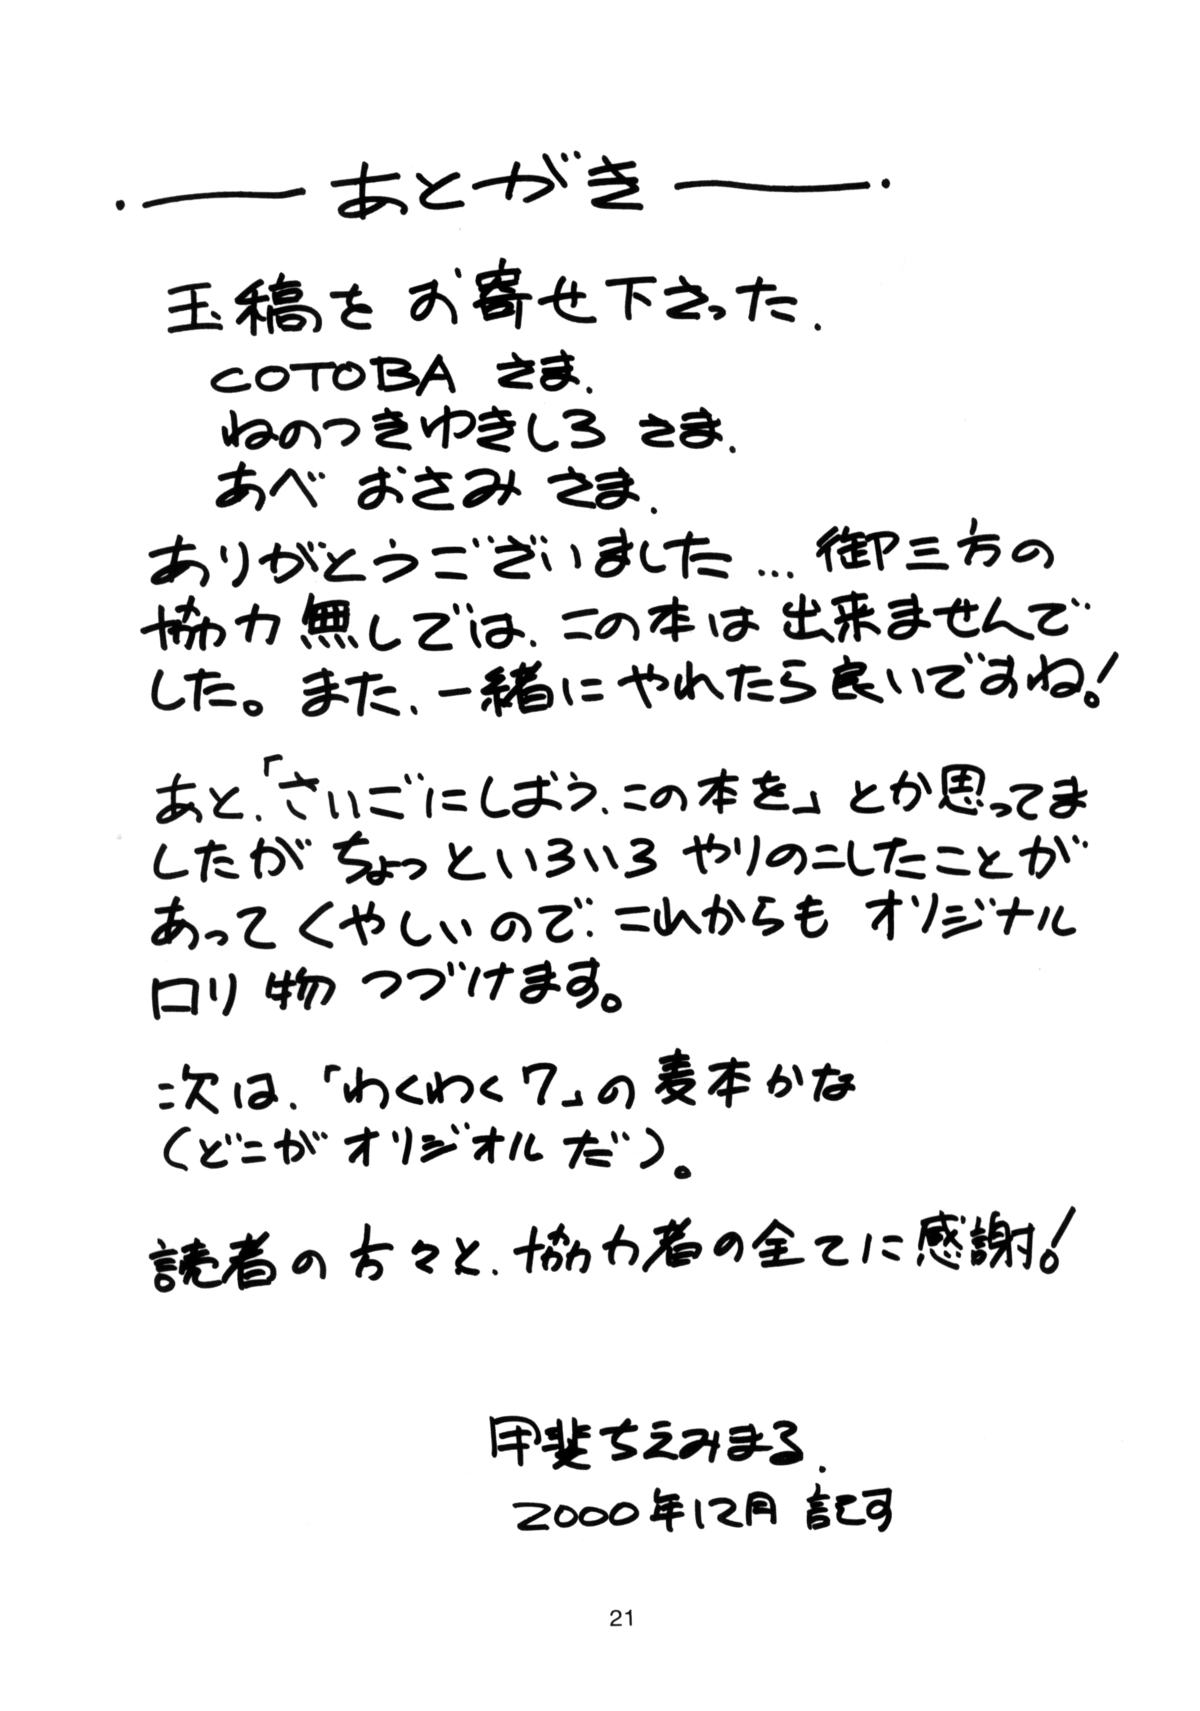 あとがき
玉稿をお寄せ下さった、
COTOBA さま、
ねのつきゆきしろ さま、
あべ おさみ さま、
ありがとうございました… 御三方の
協力無しでは、この本は出来ませんで
した。また、一緒にやれたら良いですね!
あと、「さいごにしばう、この本を」とか思ってま
したが ちょっといろいろ やりのこしたことが
あって くやしいので、これからも オリジナル
ロリ物 つづけます。
次は、「わくわく7」の麦本かな
(どこが オリジオル だ)。
読者の方々と、協力者の全てに感謝!
甲斐ちえみまる、
2000年12月 記す
21